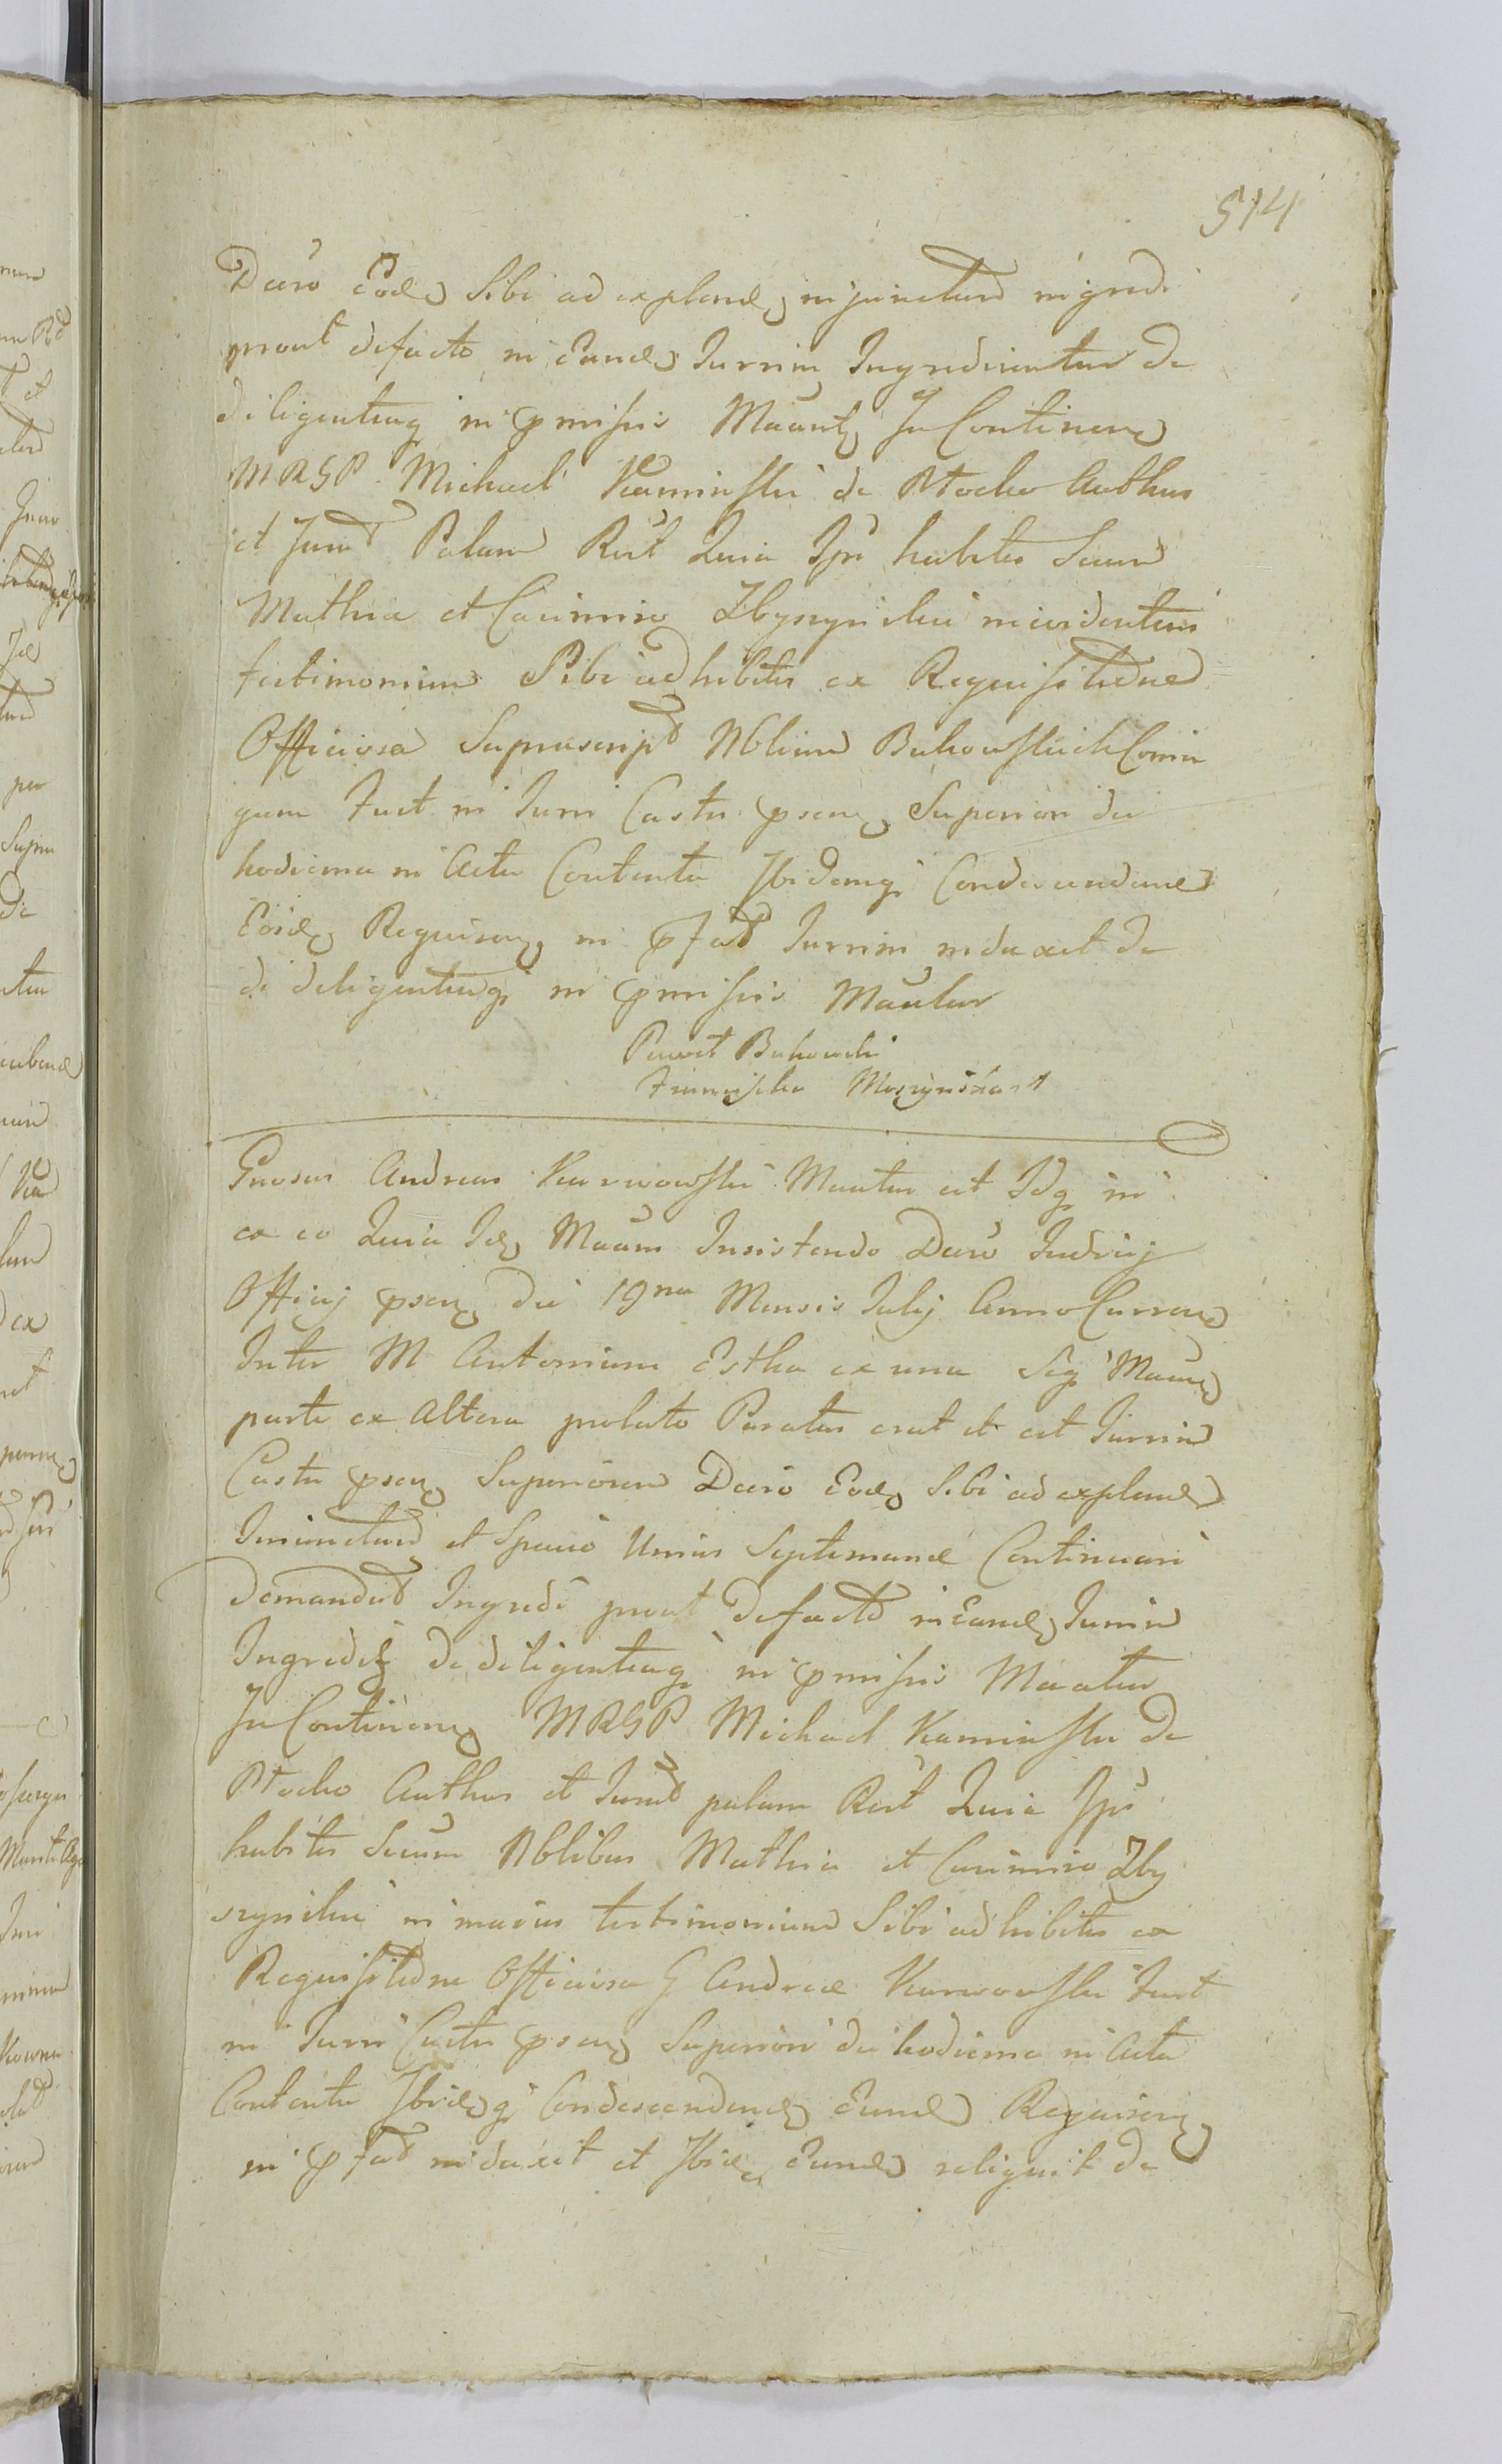 514
Decro Eod Sibi ad explend injunctam ingredi
prout defacto in eand Turrim Ingrediuntur de
diligentiaq in pmissis Mãant In Continen
MRGP Michael Kaminski de Ptocko Authus
et Jurat Palam Rñt Quia Ipse habitis Secum
Mathia et Casimiro Zbyszynskie in evidentius
testimonium Sibi adhibitis ex Requisitione
Officiosa Suprascript Nblium Bukowskich Coniu
gum Fuit in Turri Castri psen Superiori die
hodierna in Actu Contenta Ibidemq Condescenden
Eosd Requiren in pfat Turrim induxit de
de diligentiaq in pmissis Mãatur
Paweł Bukowski
Franciszka
Gnosus Andreas Karwowski Maatus est Idq in
ex eo Quia Id Maans Insistendo Decro Iudicij
Officij psen die 19na Mensis Julij Anno Curren
Inter M Antonium Estka ex una Seq Maan
parte ex Altera prolato Paratus erat et est Turrim
Castri psen Superiorem Decro Eod Sibi ad explend
Iniunctam et Spacio Unius Septimanae Continuari
Demandat Ingredi prout Defacto in Eand Turrim
Ingredit de diligentiaq in pmissis Maatur
In Continen MRGP Michael Kaminski de
Ptocko Authus et Jurat palam Rñt Quia Ipse
habitis Secum Nblibus Mathia et Casimiro Zby
szynskie in maius testimonium Sibi adhibitis ex
Requisitione Officiosa G Andreae Karwowski Fuit
in Turri Castri psen Superiori die hodierna in Actu
Contenta Ibidq Condescenden Eund Requiren
in pfat induxit et Ibid Eund reliquit de